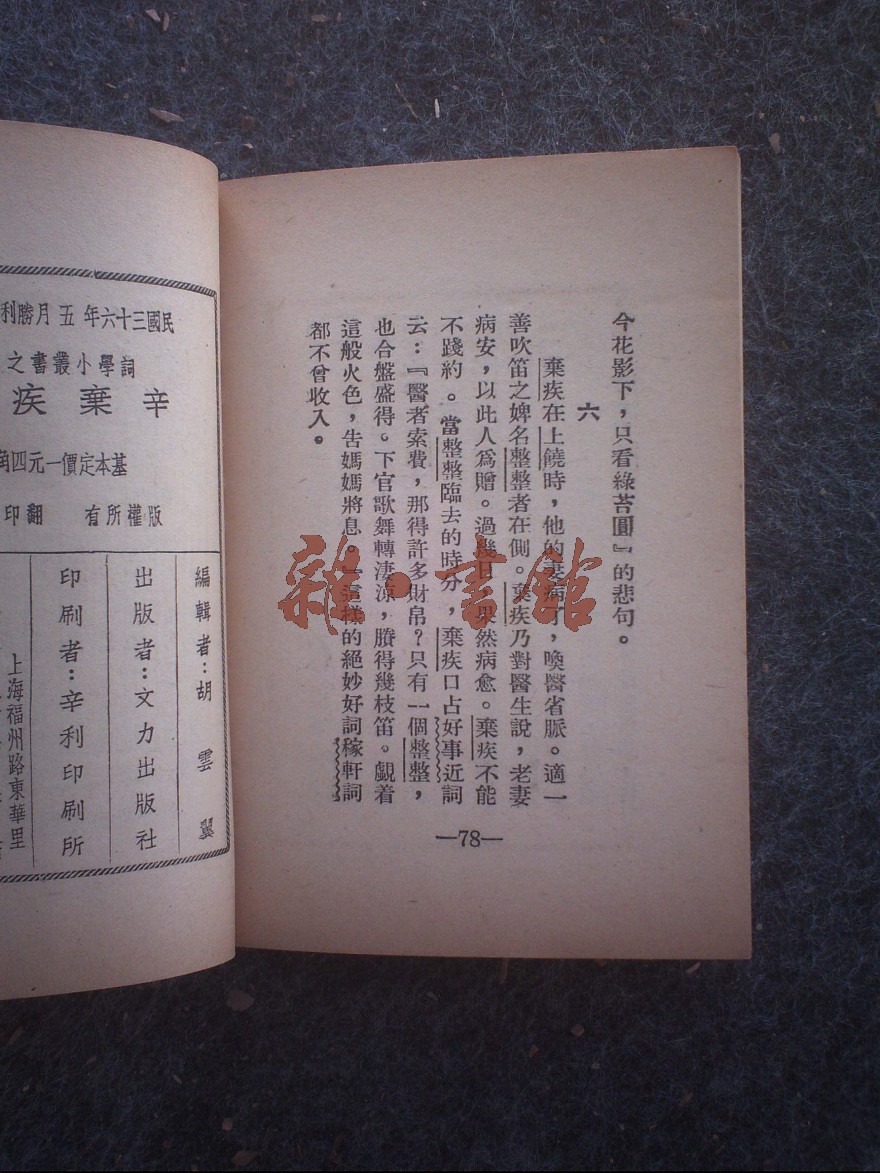 今花影下，只看綠苔圓』的悲句。
六
棄疾在上饒時，他的妻病了，喚醫省脈。適一
善吹笛之婢名整整者在側。棄疾乃對醫生說，老妻
病安，以此人爲贈。過幾日，果然病愈。棄疾不能
不踐約。當整整臨去的時分，棄疾口占好事近詞
云：『醫者索費，那得許多財帛？只有一個整整，
也合盤盛得。下官歌舞轉淒涼，賸得幾枝笛。覷着
這般火色，告媽媽將息。』這樣的絕妙好詞稼軒詞
都不曾收入。
—78—
雜·書館
民國三十六年五月勝利
詞學小叢書之
辛棄疾
基本定價一元四角
版權所有 翻印
編輯者：胡雲翼
出版者：文力出版社
印刷者：辛利印刷所
上海福州路東華里